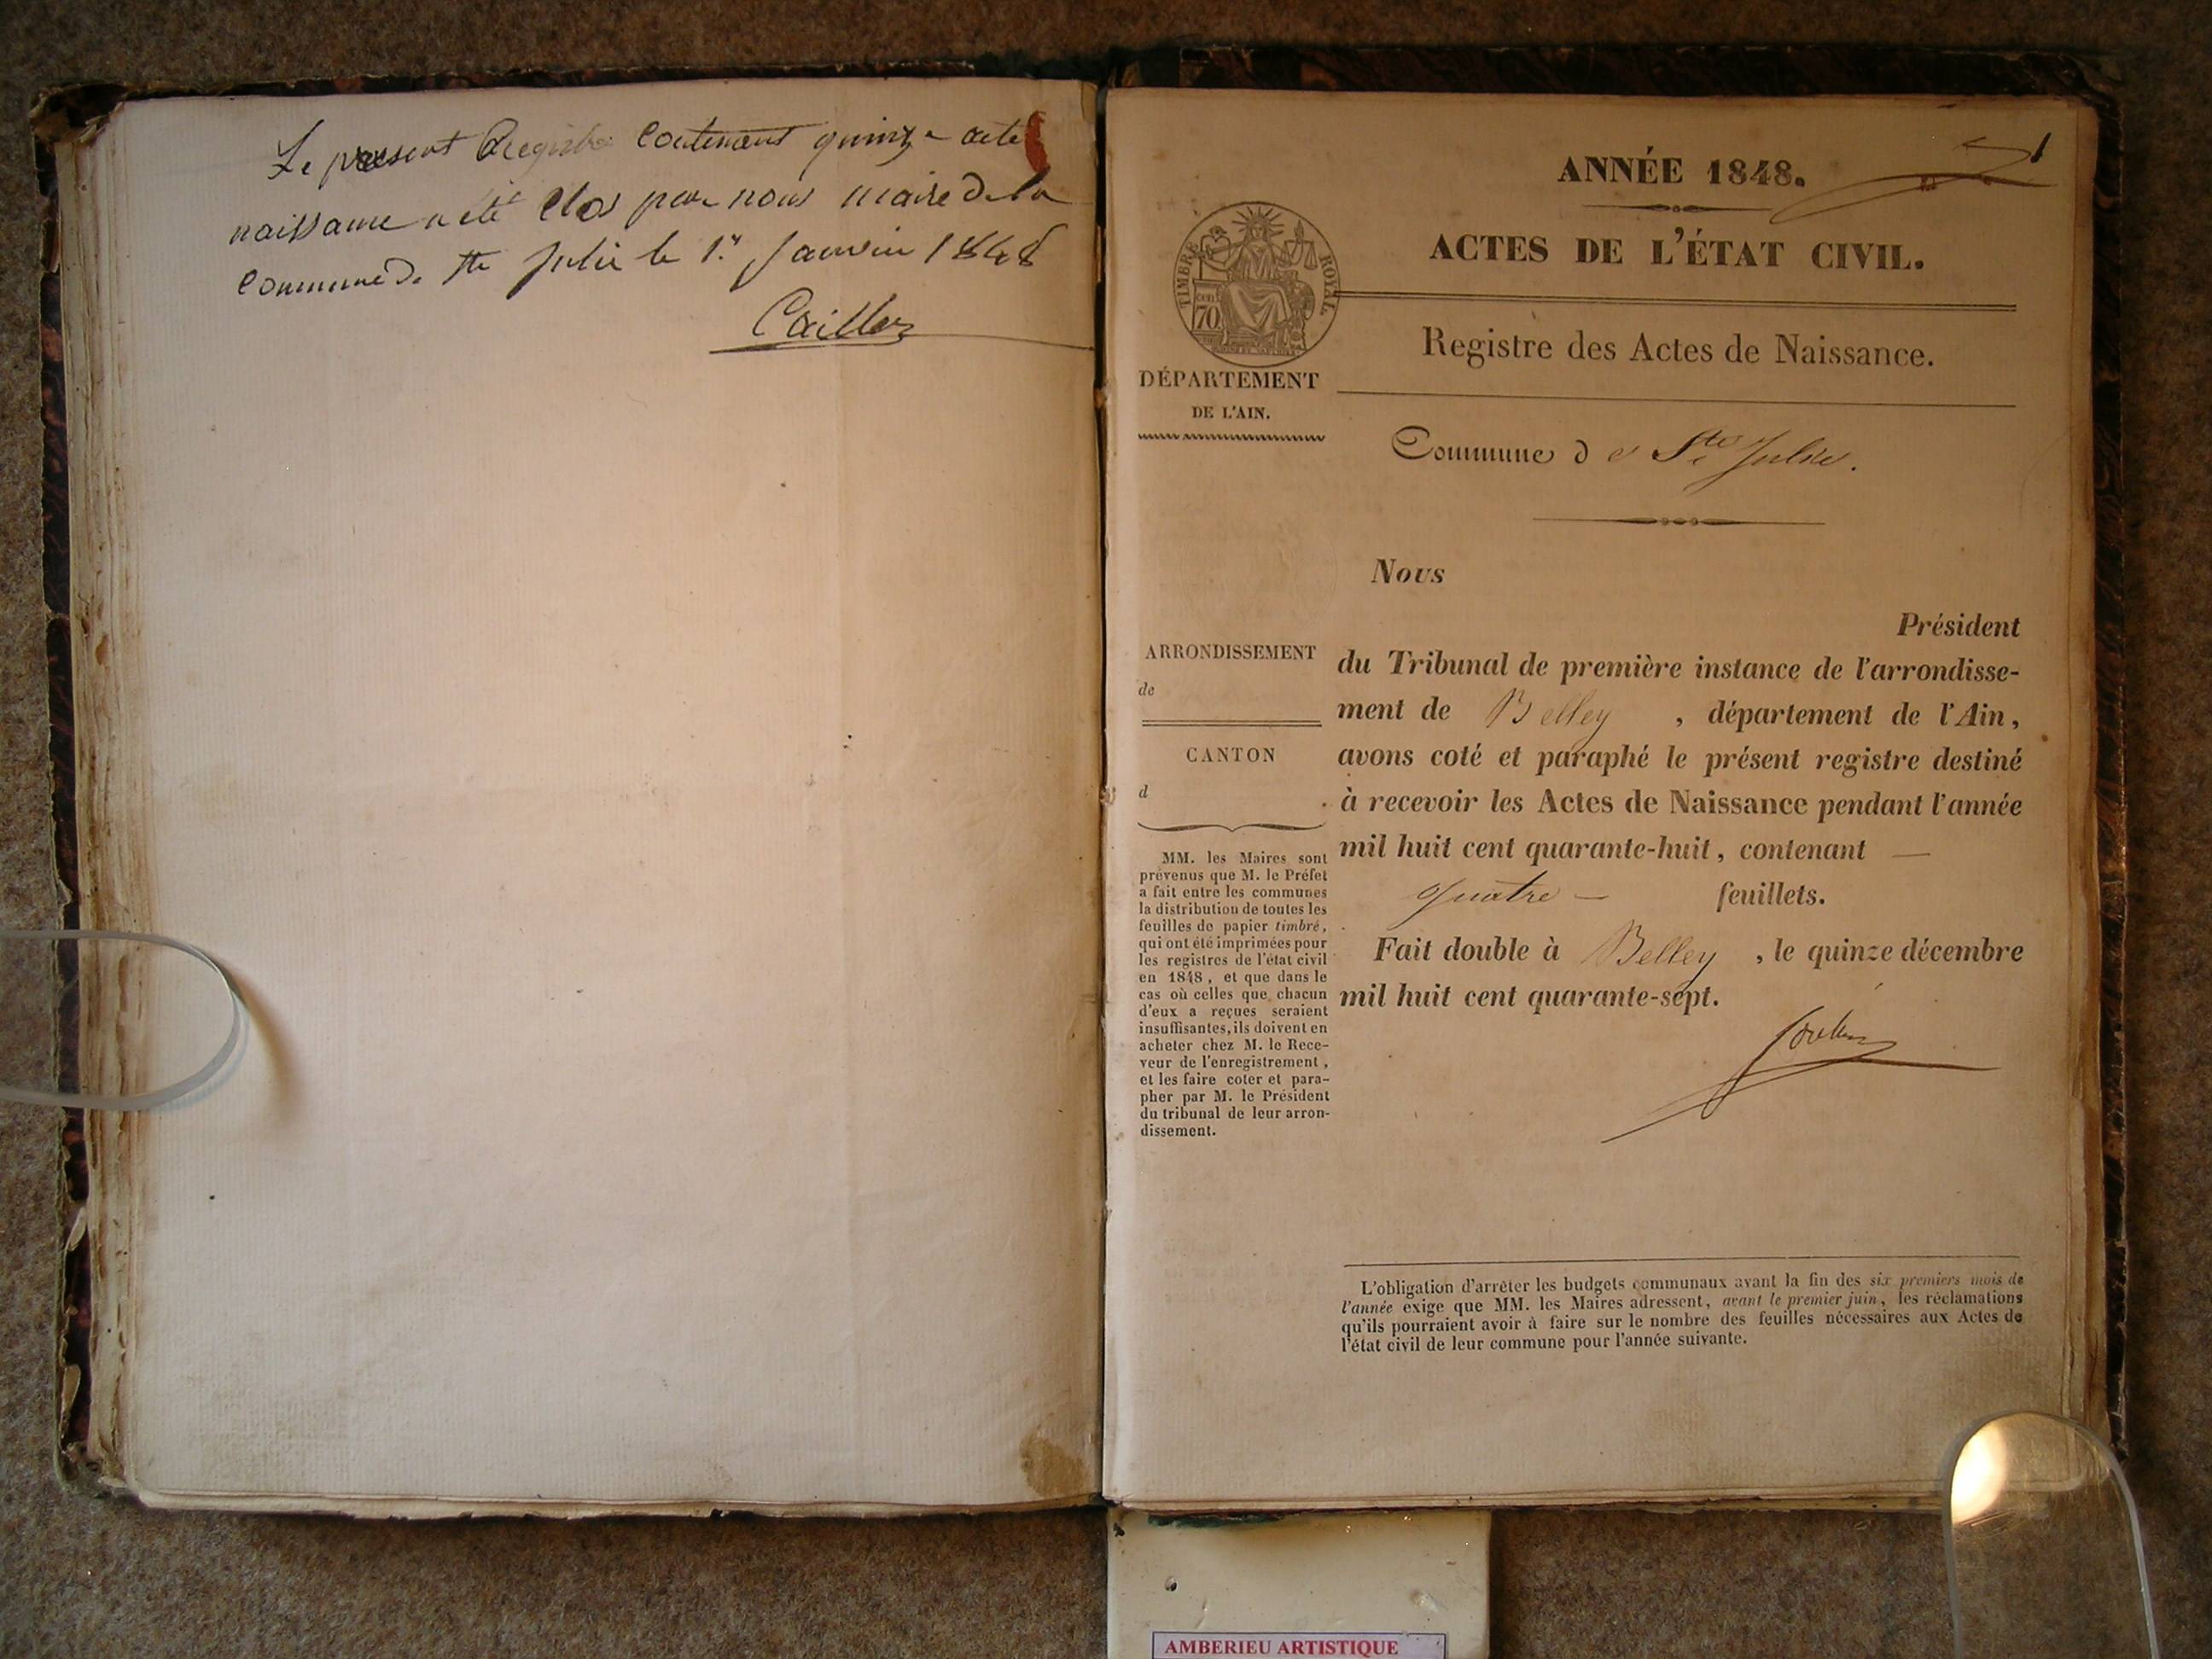 Le present Registre contenant quinze acte
naissance a été Clos par nous maire de la
commune de Ste Julie le 1er Janvier 1848
1
ANNÉE 1848.
ACTES DE L'ÉTAT CIVIL.
TIMBRE ROYAL
cent. 70.
Registre des Actes de Naissance.
DÉPARTEMENT
DE L'AIN.
Commune de Ste Julie.
Nous
Président
du Tribunal de première instance de l'arrondisse-
ment de Belley, département de l'Ain,
avons coté et paraphé le présent registre destiné
à recevoir les Actes de Naissance pendant l'année
mil huit cent quarante-huit, contenant —
quatre — feuillets.
Fait double à Belley, le quinze décembre
mil huit cent quarante-sept.
ARRONDISSEMENT
de
CANTON
d
MM. les Maires sont
prévenus que M. le Préfet
a fait entre les communes
la distribution de toutes les
feuilles de papier timbré,
qui ont été imprimées pour
les registres de l'état civil
en 1848, et que dans le
cas où celles que chacun
d'eux a reçues seraient
insuffisantes, ils doivent en
acheter chez M. le Rece-
veur de l'enregistrement,
et les faire coter et para-
pher par M. le Président
du tribunal de leur arron-
dissement.
L'obligation d'arrêter les budgets communaux avant la fin des six premiers mois de
l'année exige que MM. les Maires adressent, avant le premier juin, les réclamations
qu'ils pourraient avoir à faire sur le nombre des feuilles nécessaires aux Actes de
l'état civil de leur commune pour l'année suivante.
AMBERIEU ARTISTIQUE